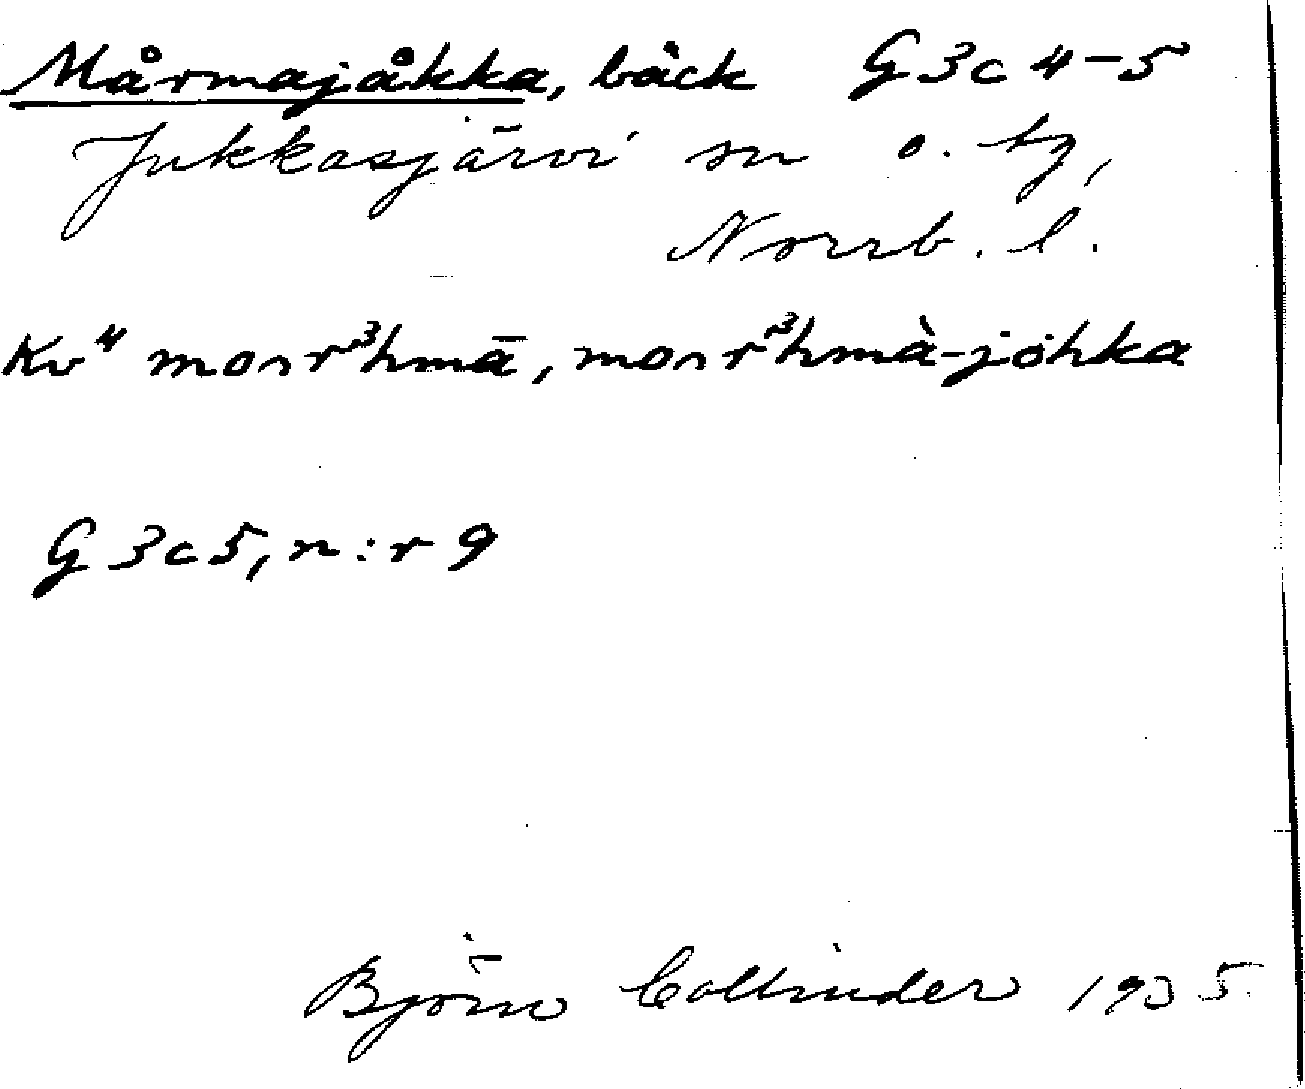 Mårmajåkka, bäck G3c4-5
Jukkasjärvi sn o. tg,
Norrb. l.
Kv⁴ moᴧr³hmā, moᴧr³hmà-jòhka
G3c5, n:r 9
Björn Collinder 1935.